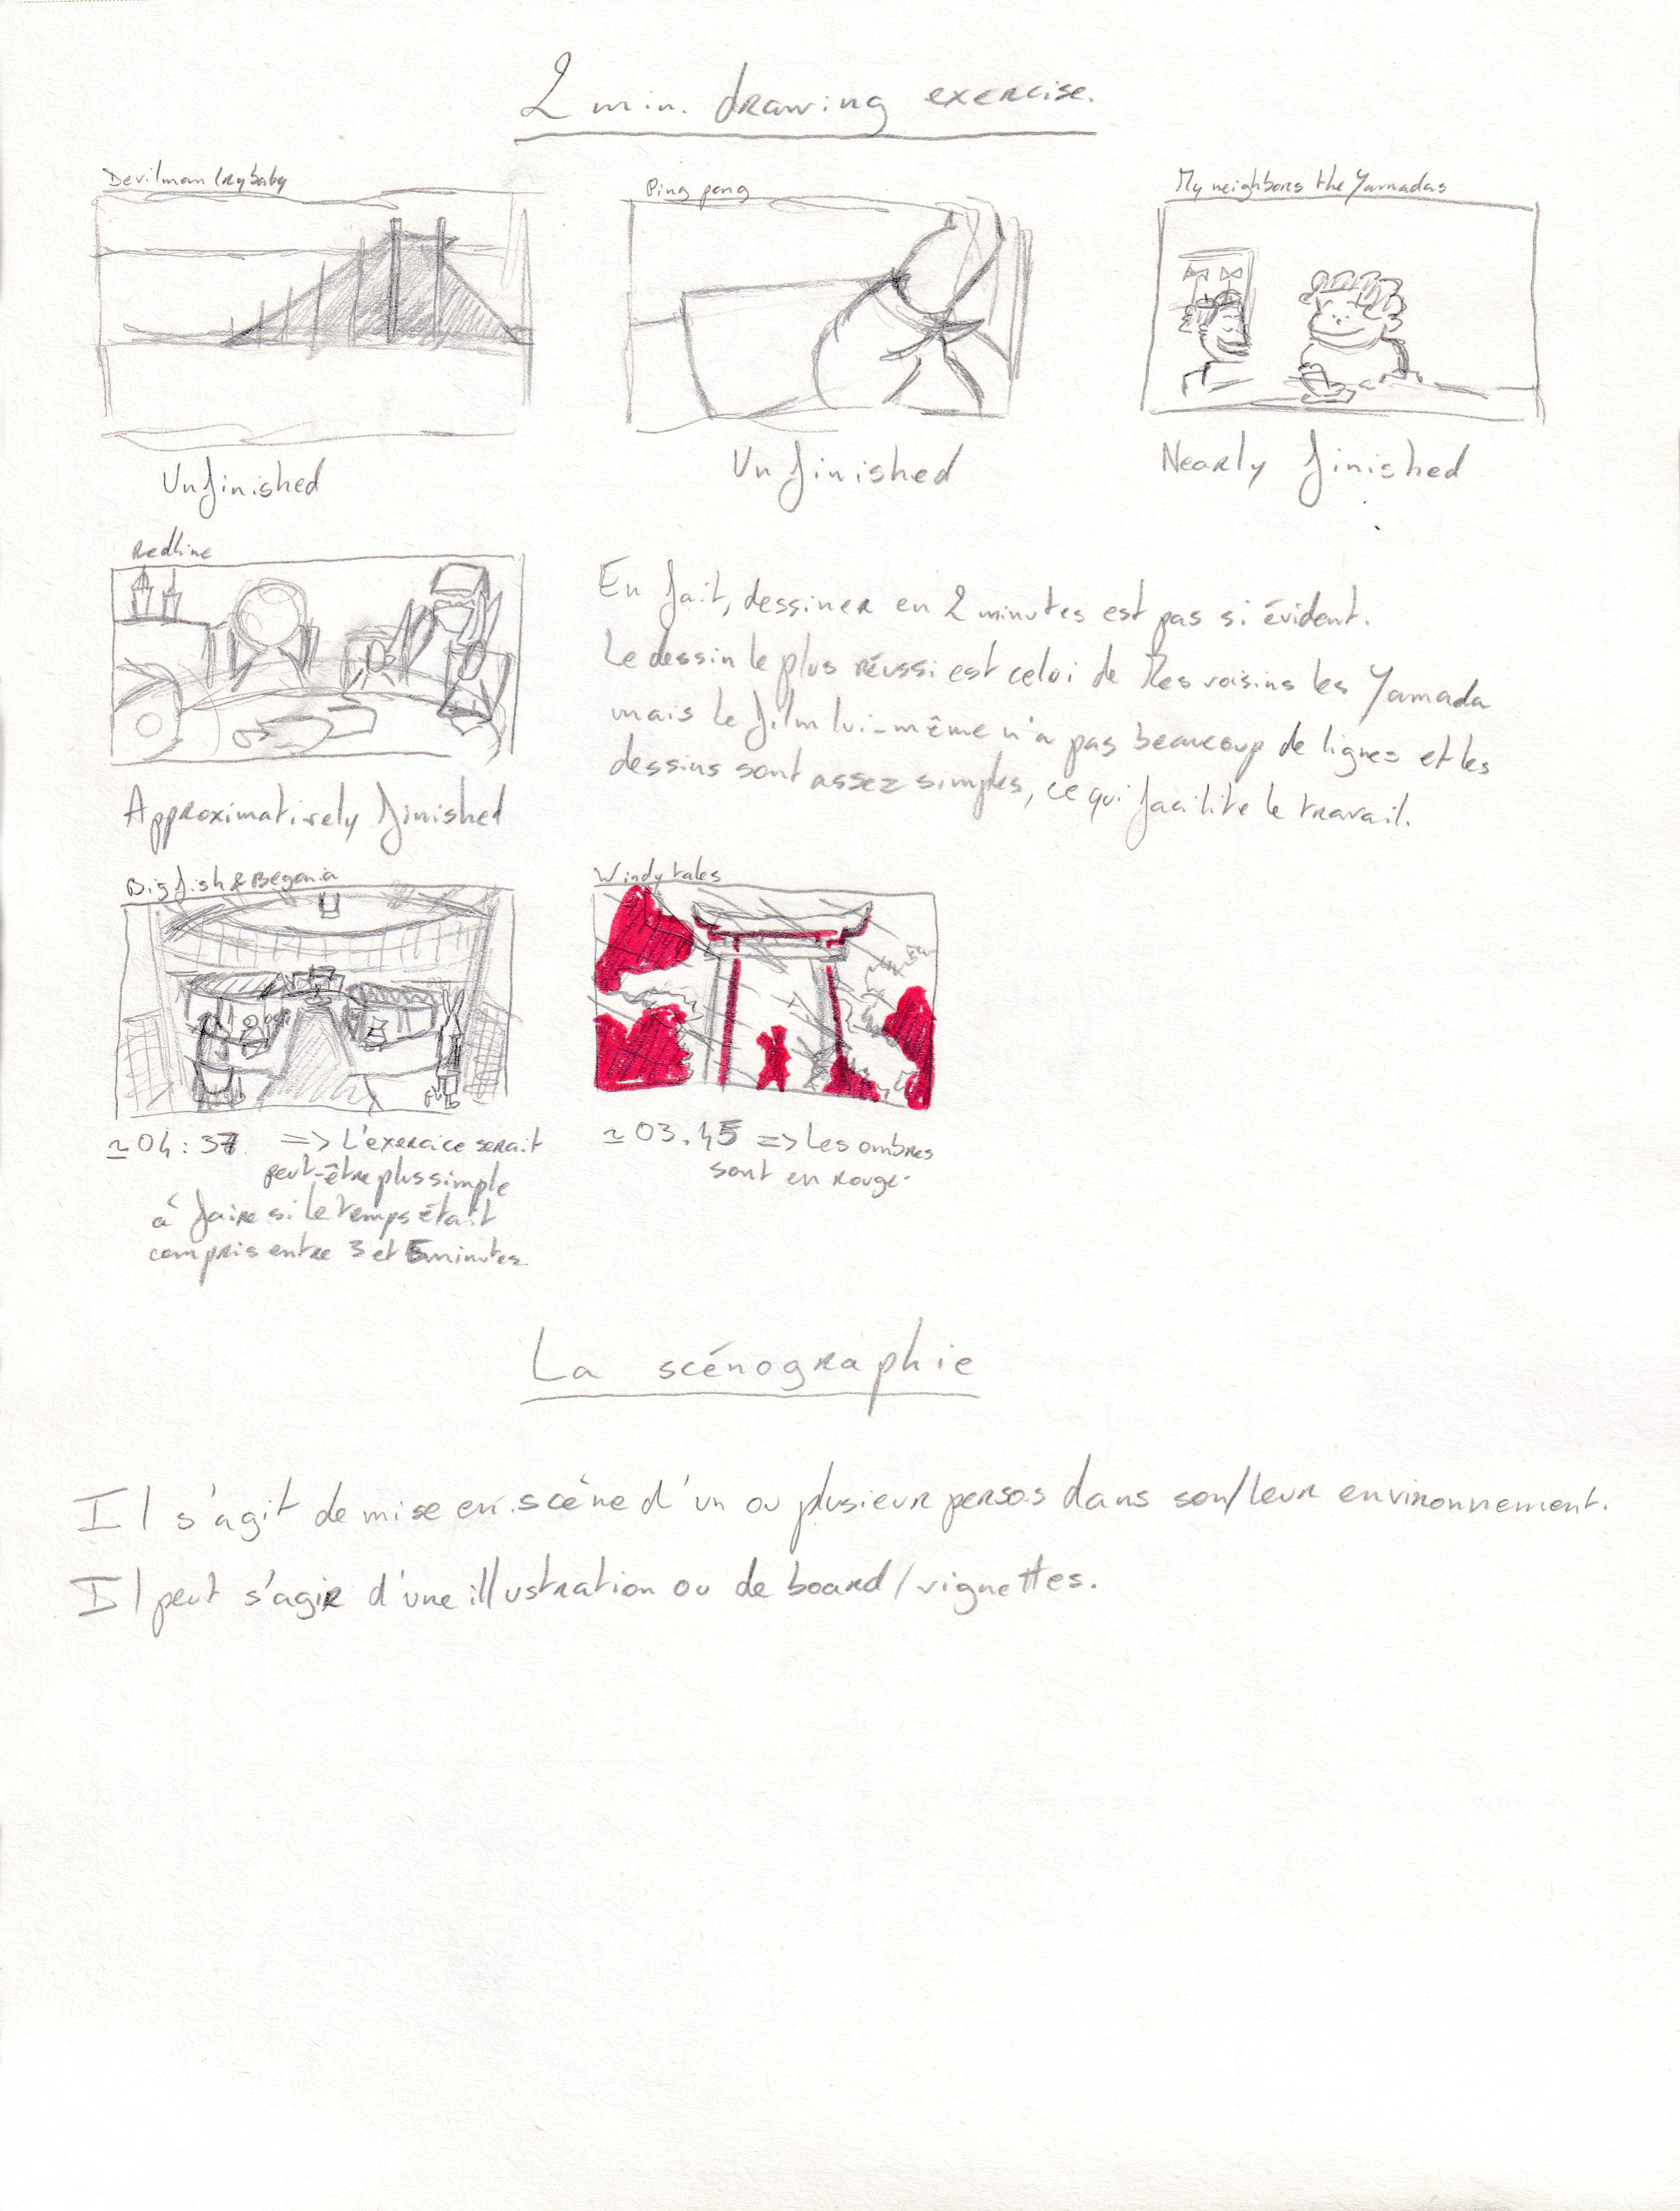 2 min. drawing exercise.
Devilman Crybaby
Ping pong
My neighbors the Yamadas
Unfinished
Unfinished
Nearly finished
Redline
En fait, dessiner en 2 minutes est pas si évident.
Le dessin le plus réussi est celui de Mes voisins les Yamada
mais le film lui-même n'a pas beaucoup de lignes et les
dessins sont assez simples, ce qui facilite le travail.
Approximatively finished
Big fish & Begonia
Windy tales
≃ 04:37 => L'exercice serait
peut-être plus simple
à faire si le temps était
compris entre 3 et 5 minutes.
≃ 03.45 => Les ombres
sont en rouge.
La scénographie
Il s'agit de mise en scène d'un ou plusieur persos dans son/leur environnement.
Il peut s'agir d'une illustration ou de board/vignettes.